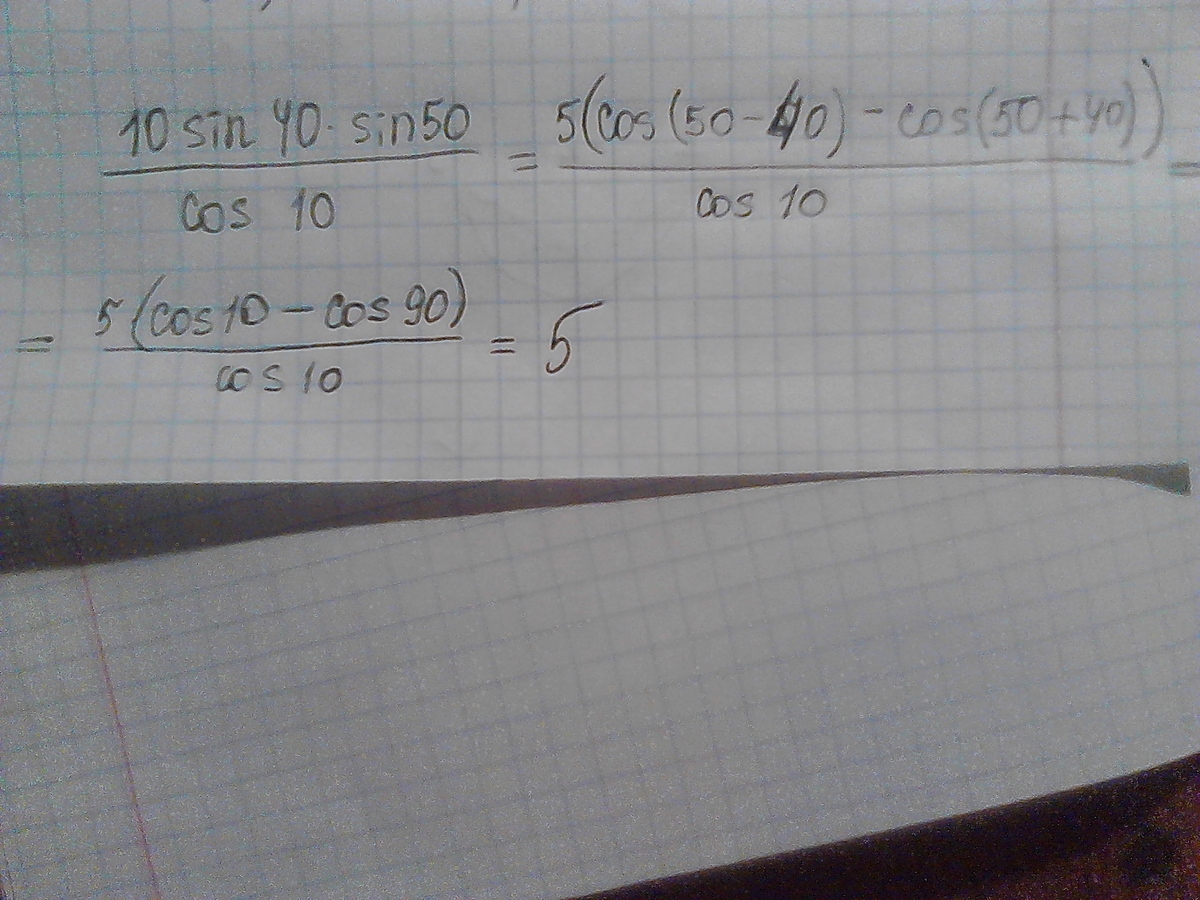 10 sin 40 · sin 50 / cos 10 = 5(cos(50-40) - cos(50+40)) / cos 10 =
= 5(cos 10 - cos 90) / cos 10 = 5